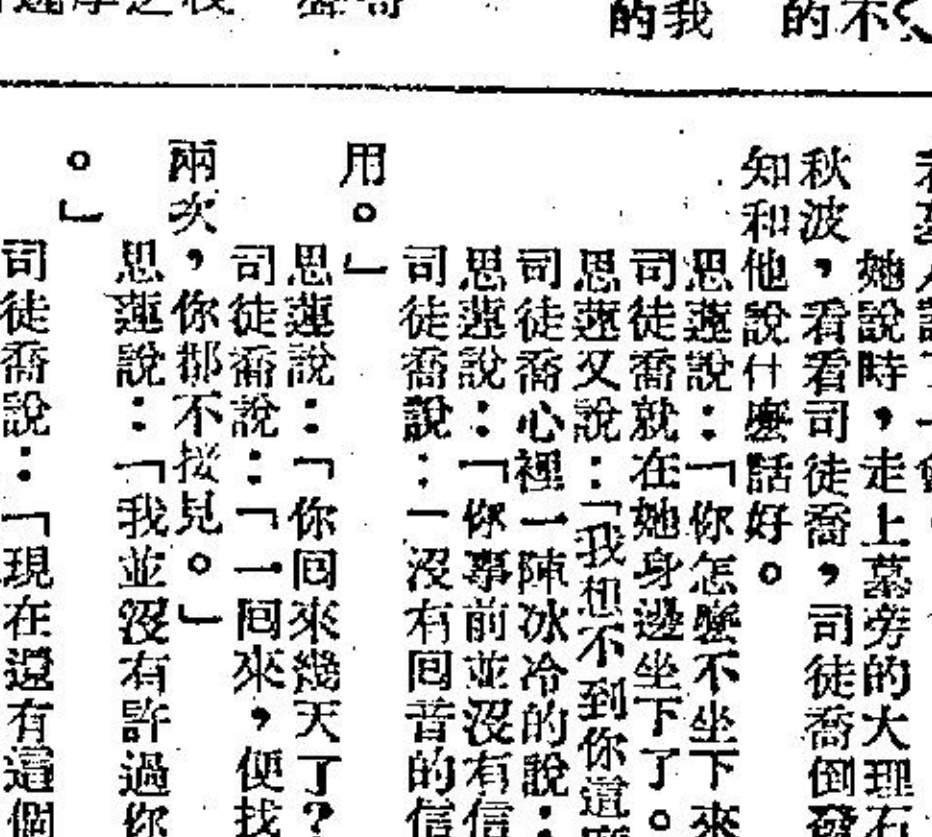 的不
的我
她說時，走上墓旁的大理石
秋波，看看司徒喬，司徒喬倒發
知和他說什麼話好。
思蓮說：「你怎麼不坐下來
司徒喬就在她身邊坐下了。
思蓮又說：「我想不到你這
司徒喬心裡一陣冰冷的說：
思蓮說：「你事前並沒有信
司徒喬說：「沒有回音的信
用。」
思蓮說：「你回來幾天了？
司徒喬說：「一回來，便找
兩次，你都不接見。」
思蓮說：「我並沒有許過你
。」
司徒喬說：「現在還有這個